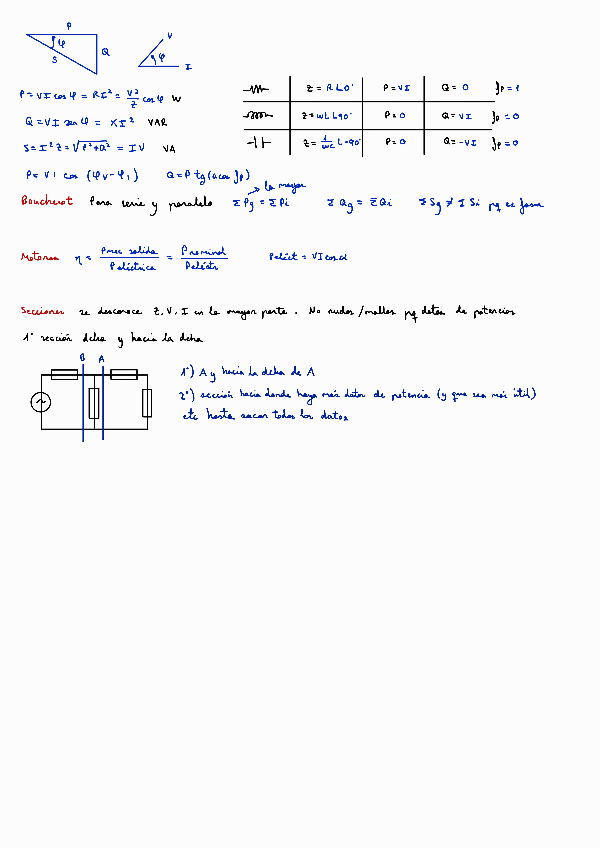 P
φ
S
Q
V
φ
I
P = VI cos φ = RI² = V²/Z cos φ W
Q = VI sen φ = XI² VAR
S = I²Z = √P²+Q² = IV VA
P = VI cos (φv - φI) Q = P tg(acos fp)
Z = R∠0° P = VI Q = 0 fp = 1
Z = ωL∠90° P = 0 Q = VI fp = 0
Z = 1/ωC ∠-90° P = 0 Q = -VI fp = 0
la mayor
Boucherot Para serie y paralelo ΣPg = ΣPi ΣQg = ΣQi ΣSg ≠ ΣSi pq es fasor
Motores η = Pmec salida / Peléctrica = Pnominal / Peléctr Peléct = VI cos φ
Secciones se desconoce Z, V, I en la mayor parte. No nudos/mallas pq datos de potencias
1ª sección dcha y hacia la dcha
B A
1º) A y hacia la dcha de A
2º) sección hacia donde haya más datos de potencia (y que sea más útil)
etc hasta sacar todos los datos